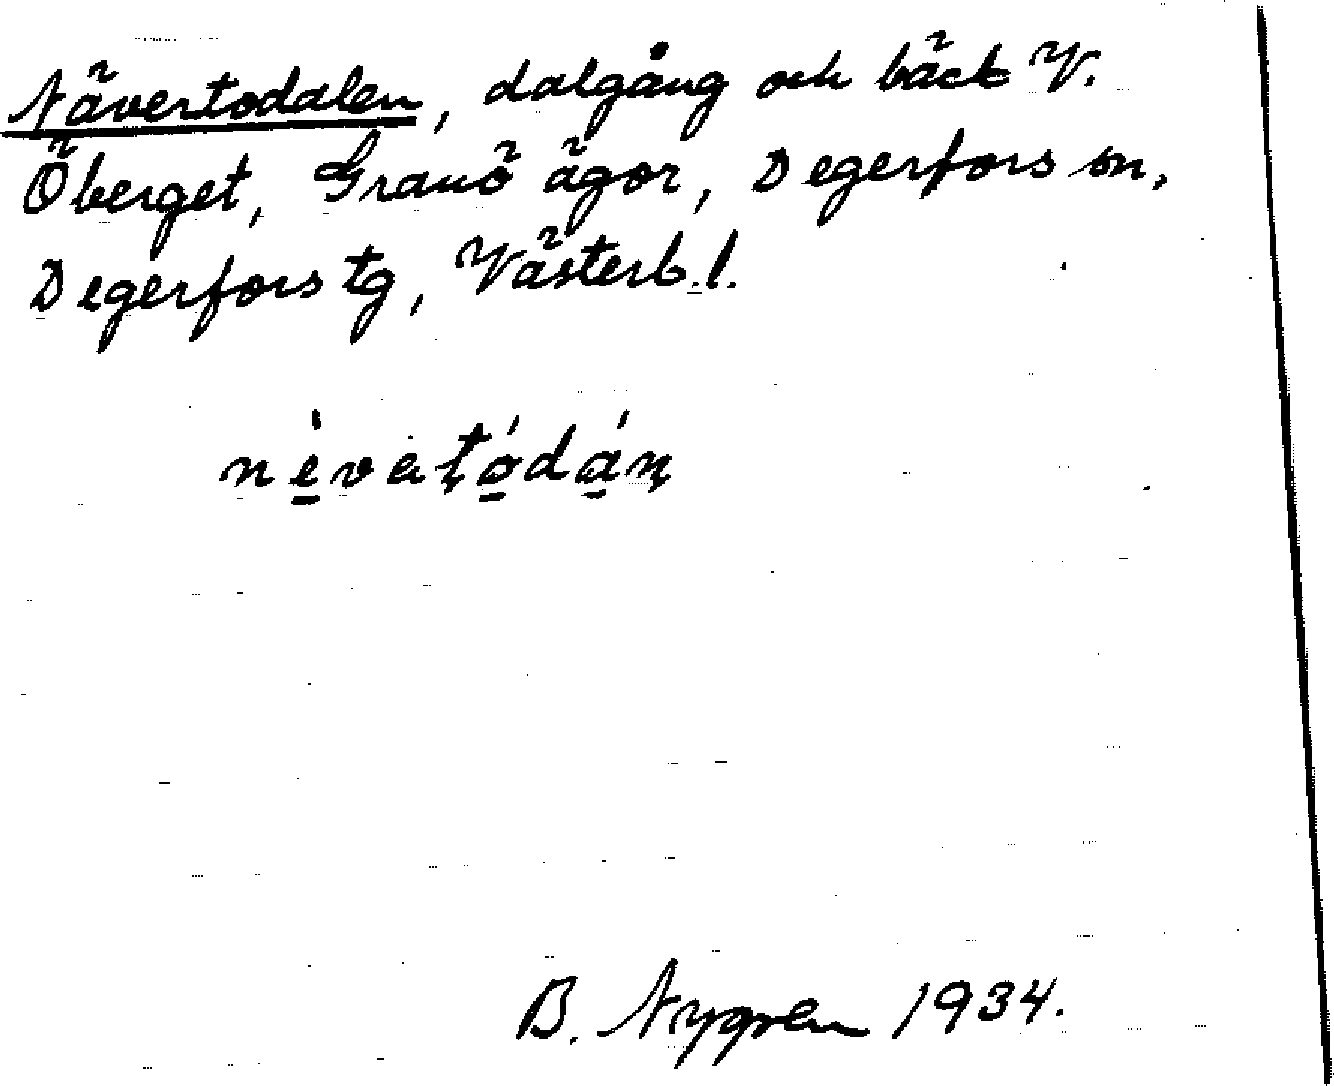 Nävertodalen, dalgång och bäck V.
Öberget, Granö ägor, Degerfors sn,
Degerfors tg, Västerb.l.
nèvatódán
B. Nygren 1934.